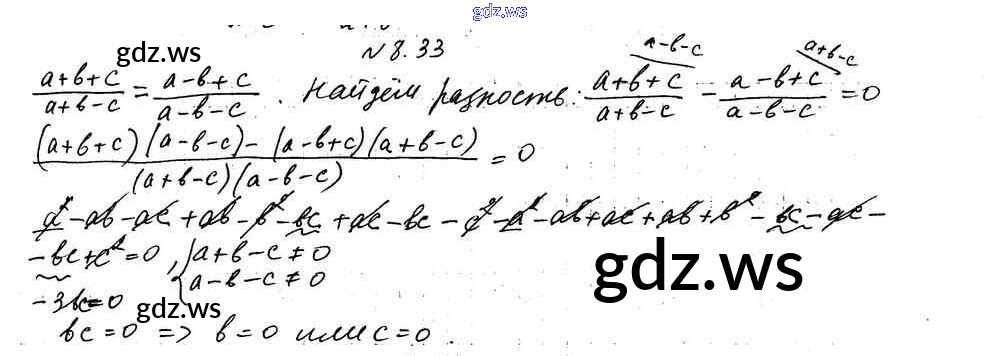 gdz.ws
№ 8.33
gdz.ws
a-b-c a+b-c
(a+b+c)/(a+b-c) = (a-b+c)/(a-b-c). Найдём разность: (a+b+c)/(a+b-c) - (a-b+c)/(a-b-c) = 0
((a+b+c)(a-b-c)-(a-b+c)(a+b-c))/((a+b-c)(a-b-c)) = 0
a²-ab-ac+ab-b²-bc+ac-bc-c²-a²-ab+ac+ab+b²-bc-ac-
-bc+c²=0, {a+b-c≠0
a-b-c≠0
gdz.ws
-3bc=0 gdz.ws
bc=0 => b=0 или c=0.